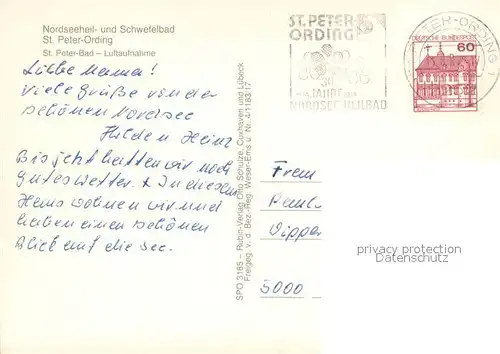 Nordseeheil- und Schwefelbad
St. Peter-Ording
St. Peter-Bad – Luftaufnahme
Liebe Mama!
Viele Grüße von der
schönen Nordsee
Hilde u Heinz
Bis jetzt hatten wir noch
gutes Wetter. x In diesem
Haus wohnen wir und
haben einen schönen
Blick auf die See.
SPO 3185 – Rubin-Verlag Otto Schulze, Cuxhaven und Lübeck
Freigeg. v. d. Bez.-Reg. Weser-Ems u. Nr. 4/1163/17
ST. PETER-
ORDING
JAHRE
NORDSEEHEILBAD
PETER-ORDING
DEUTSCHE BUNDESPOST
60
5000
privacy protection
Datenschutz